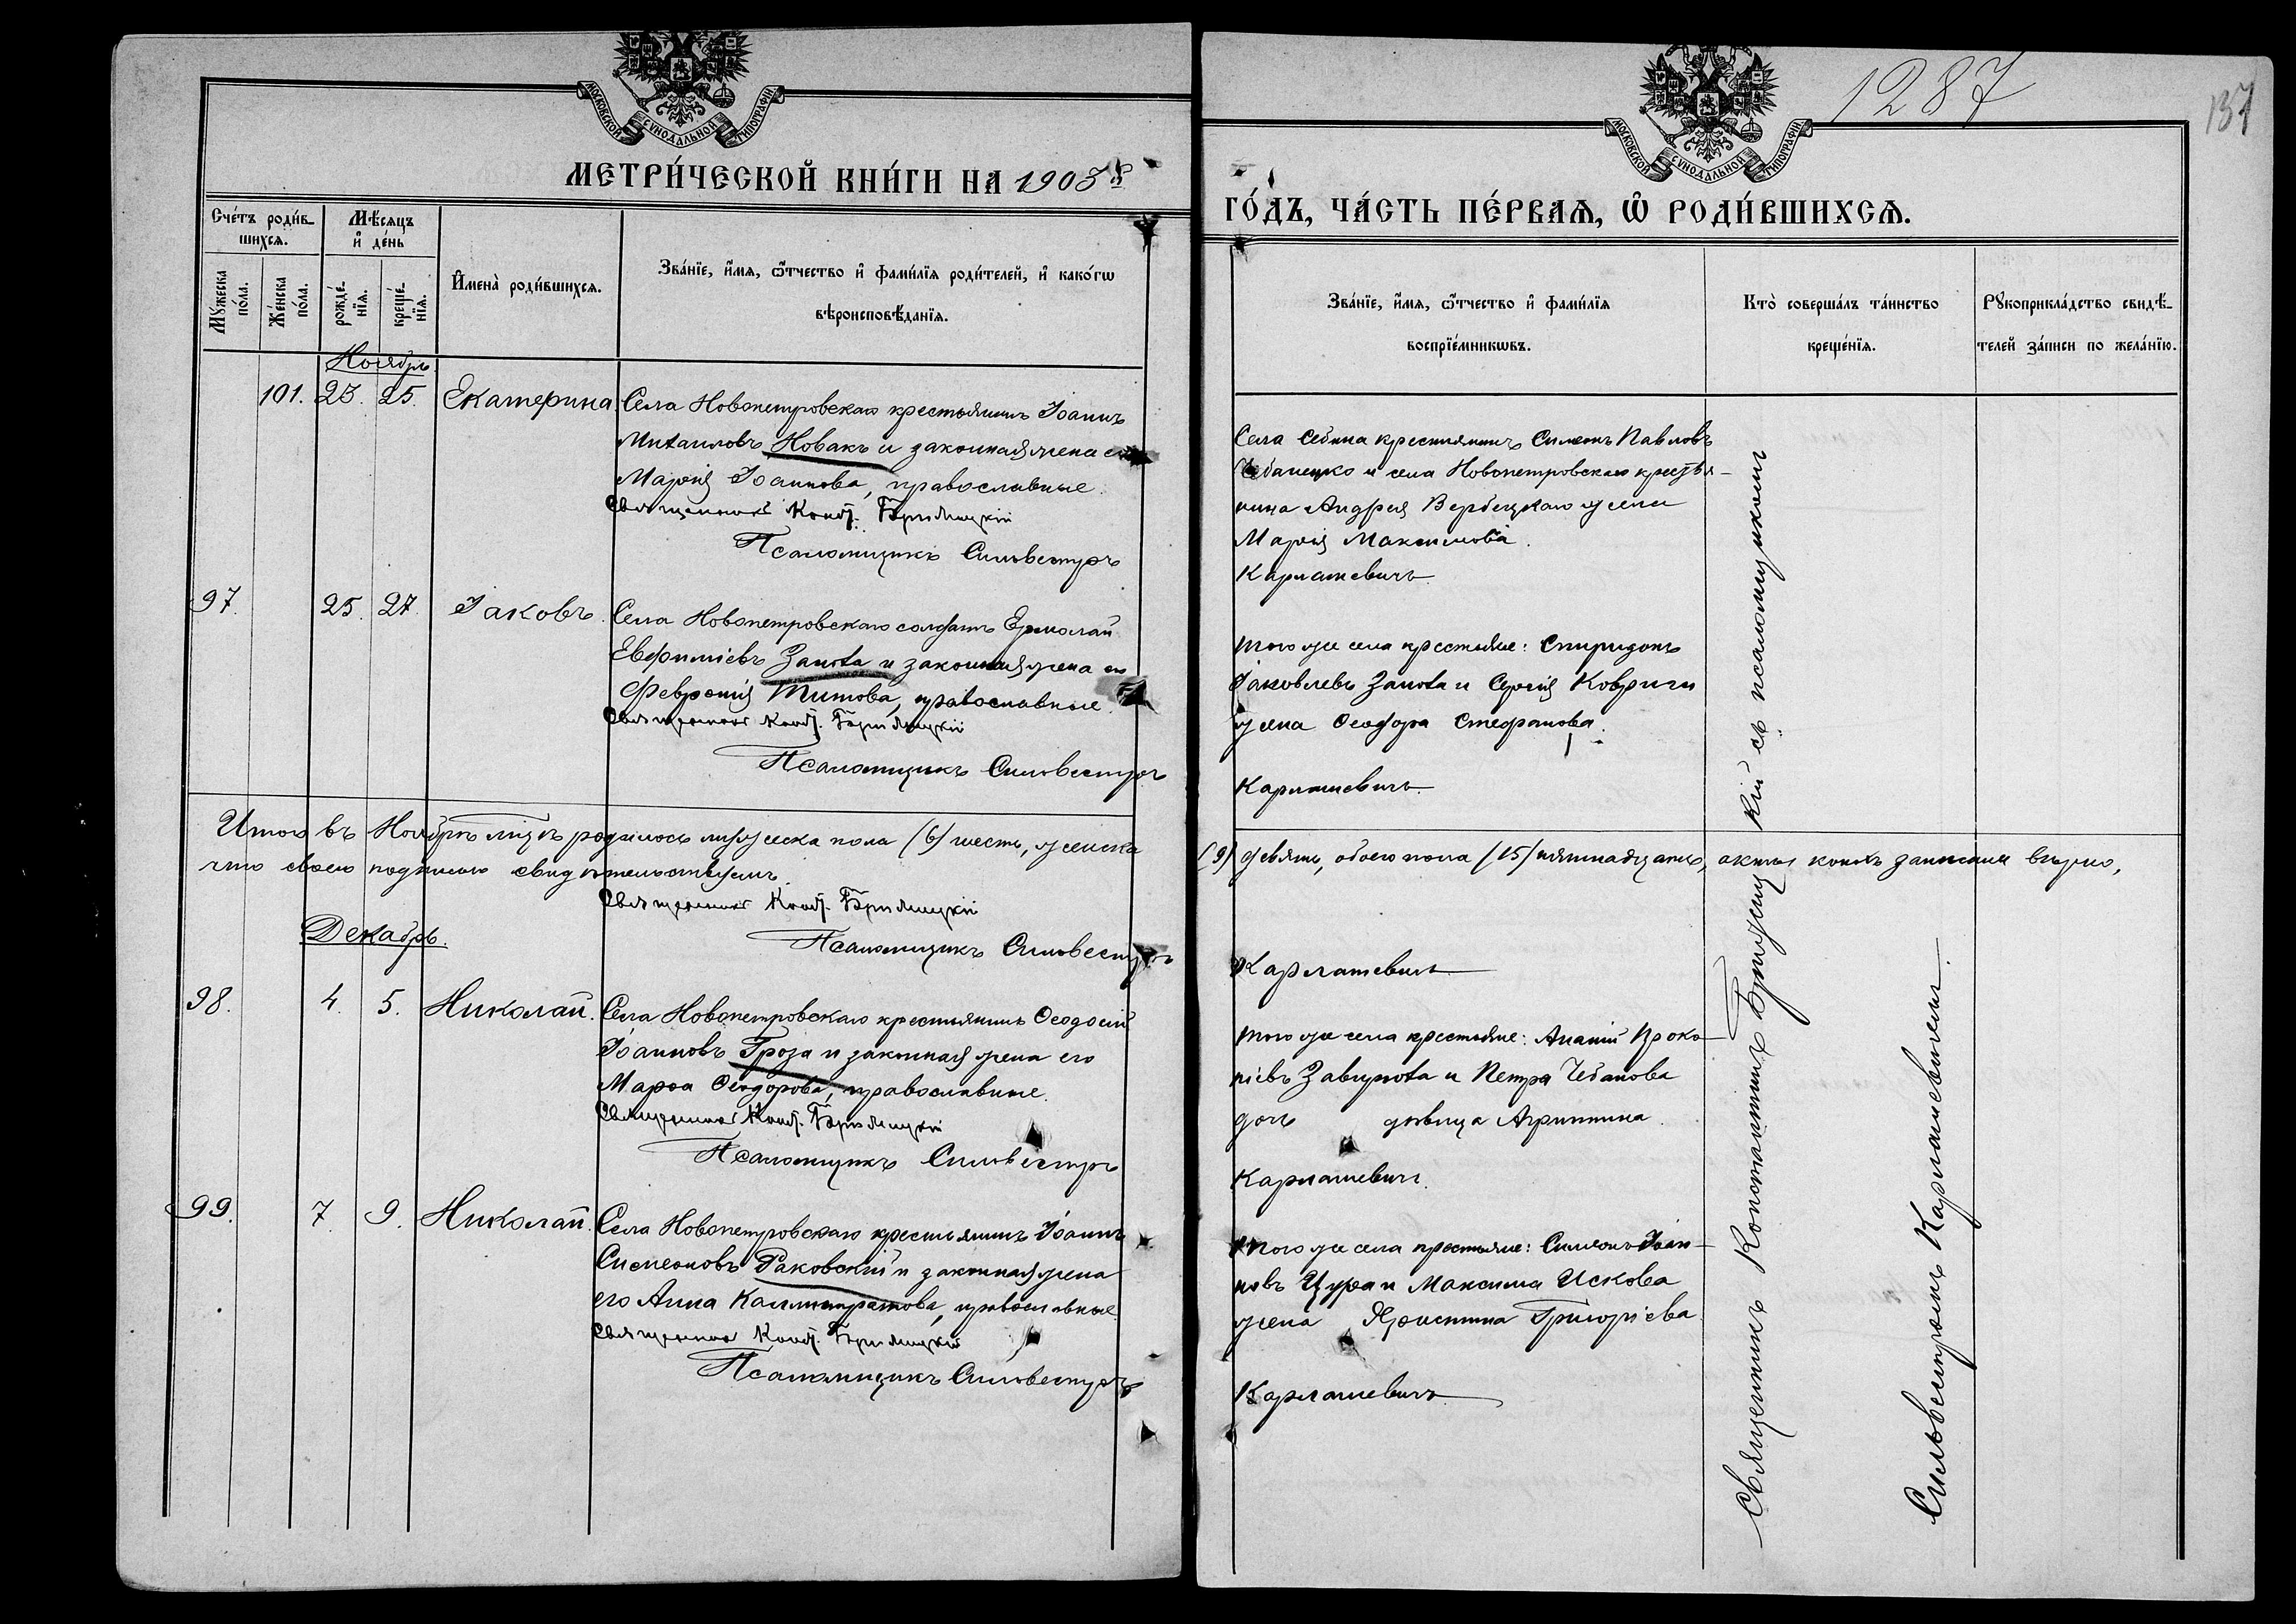 МОСКОВСКОЙ СѴНОДАЛЬНОЙ ТИПОГРАФІИ
МЕТРИ́ЧЕСКОЙ КНИ́ГИ НА 1903 й
Сче́тъ роди́в-
шихся.
Мѣ́сяцъ
и҆ де́нь
Мꙋ́жеска
по́ла.
Же́нска
по́ла.
рожде́-
нїя.
креще́-
нїя.
И҆мена̀ роди́вшихся.
Зва́нїе, и҆́мя, ѻ҆́тчество и҆ фами́лїя роди́телей, и҆ како́гѡ
вѣроисповѣ́данїя.
Ноябрь
101. 23. 25. Екатерина Села Новопетровскаго крестьянинъ Іоаннъ
Михаиловъ Новакъ и законная жена его
Марія Іоаннова, православные.
Священникъ Конст. Брижицкій
Псаломщикъ Сильвестръ
97. 25. 27. Іаковъ. Села Новопетровскаго солдатъ Ермолай
Евфиміевъ Запота и законная жена его
Февронія Титова, православные.
Священникъ Конст. Брижицкій
Псаломщикъ Сильвестръ
Итого въ Ноябрѣ мцѣ родилось мужеска пола (6) шесть, женска
что своею подписью свидѣтельствуемъ.
Священникъ Конст. Брижицкій
Псаломщикъ Сильвестръ
Декабрь.
98. 4. 5. Николай. Села Новопетровскаго крестьянинъ Ѳеодосій
Іоанновъ Гроза и законная жена его
Марѳа Ѳеодорова, православные.
Священникъ Конст. Брижицкій
Псаломщикъ Сильвестръ
99. 7. 9. Николай. Села Новопетровскаго крестьянинъ Іоаннъ
Симеоновъ Раковскій и законная жена
его Анна Каллистратова, православные
Священникъ Конст. Брижицкій
Псаломщикъ Сильвестръ
1287
137
МОСКОВСКОЙ СѴНОДАЛЬНОЙ ТИПОГРАФІИ
ГО́ДЪ, ЧА́СТЬ ПЕ́РВАѦ, Ѽ РОДИ́ВШИХСѦ.
Зва́нїе, и҆́мя, ѻ҆́тчество и҆ фами́лїя
воспрїе́мникѡвъ.
Кто̀ соверша́лъ та́инство
креще́нїя.
Рꙋкоприкла́дство свидѣ́-
телей за́писи по жела́нїю.
Села Себина крестьянинъ Симеонъ Павловъ
Чебаненко и села Новопетровскаго крестья-
нина Андрея Вербецкаго жена
Марія Максимова.
Карлашевичъ
того же села крестьяне: Спиридонъ
Іаковлевъ Запота и Сергія Ковриги
жена Ѳеодора Стефанова.
Карлашевичъ.
(9) девять, обоего пола (15) пятнадцать, акты коихъ записаны вѣрно,
Карлашевичъ
того же села крестьяне: Ананій Проко-
піевъ Завирюха и Петра Чебанова
дочь дѣвица Агриппина.
Карлашевичъ.
того же села крестьяне: Симеонъ Іоан-
новъ Цура и Максима Искова
жена Христина Григоріева.
Карлашевичъ
Священникъ Константинъ Брижицкій съ псаломщикомъ
Сильвестромъ Карлашевичемъ.